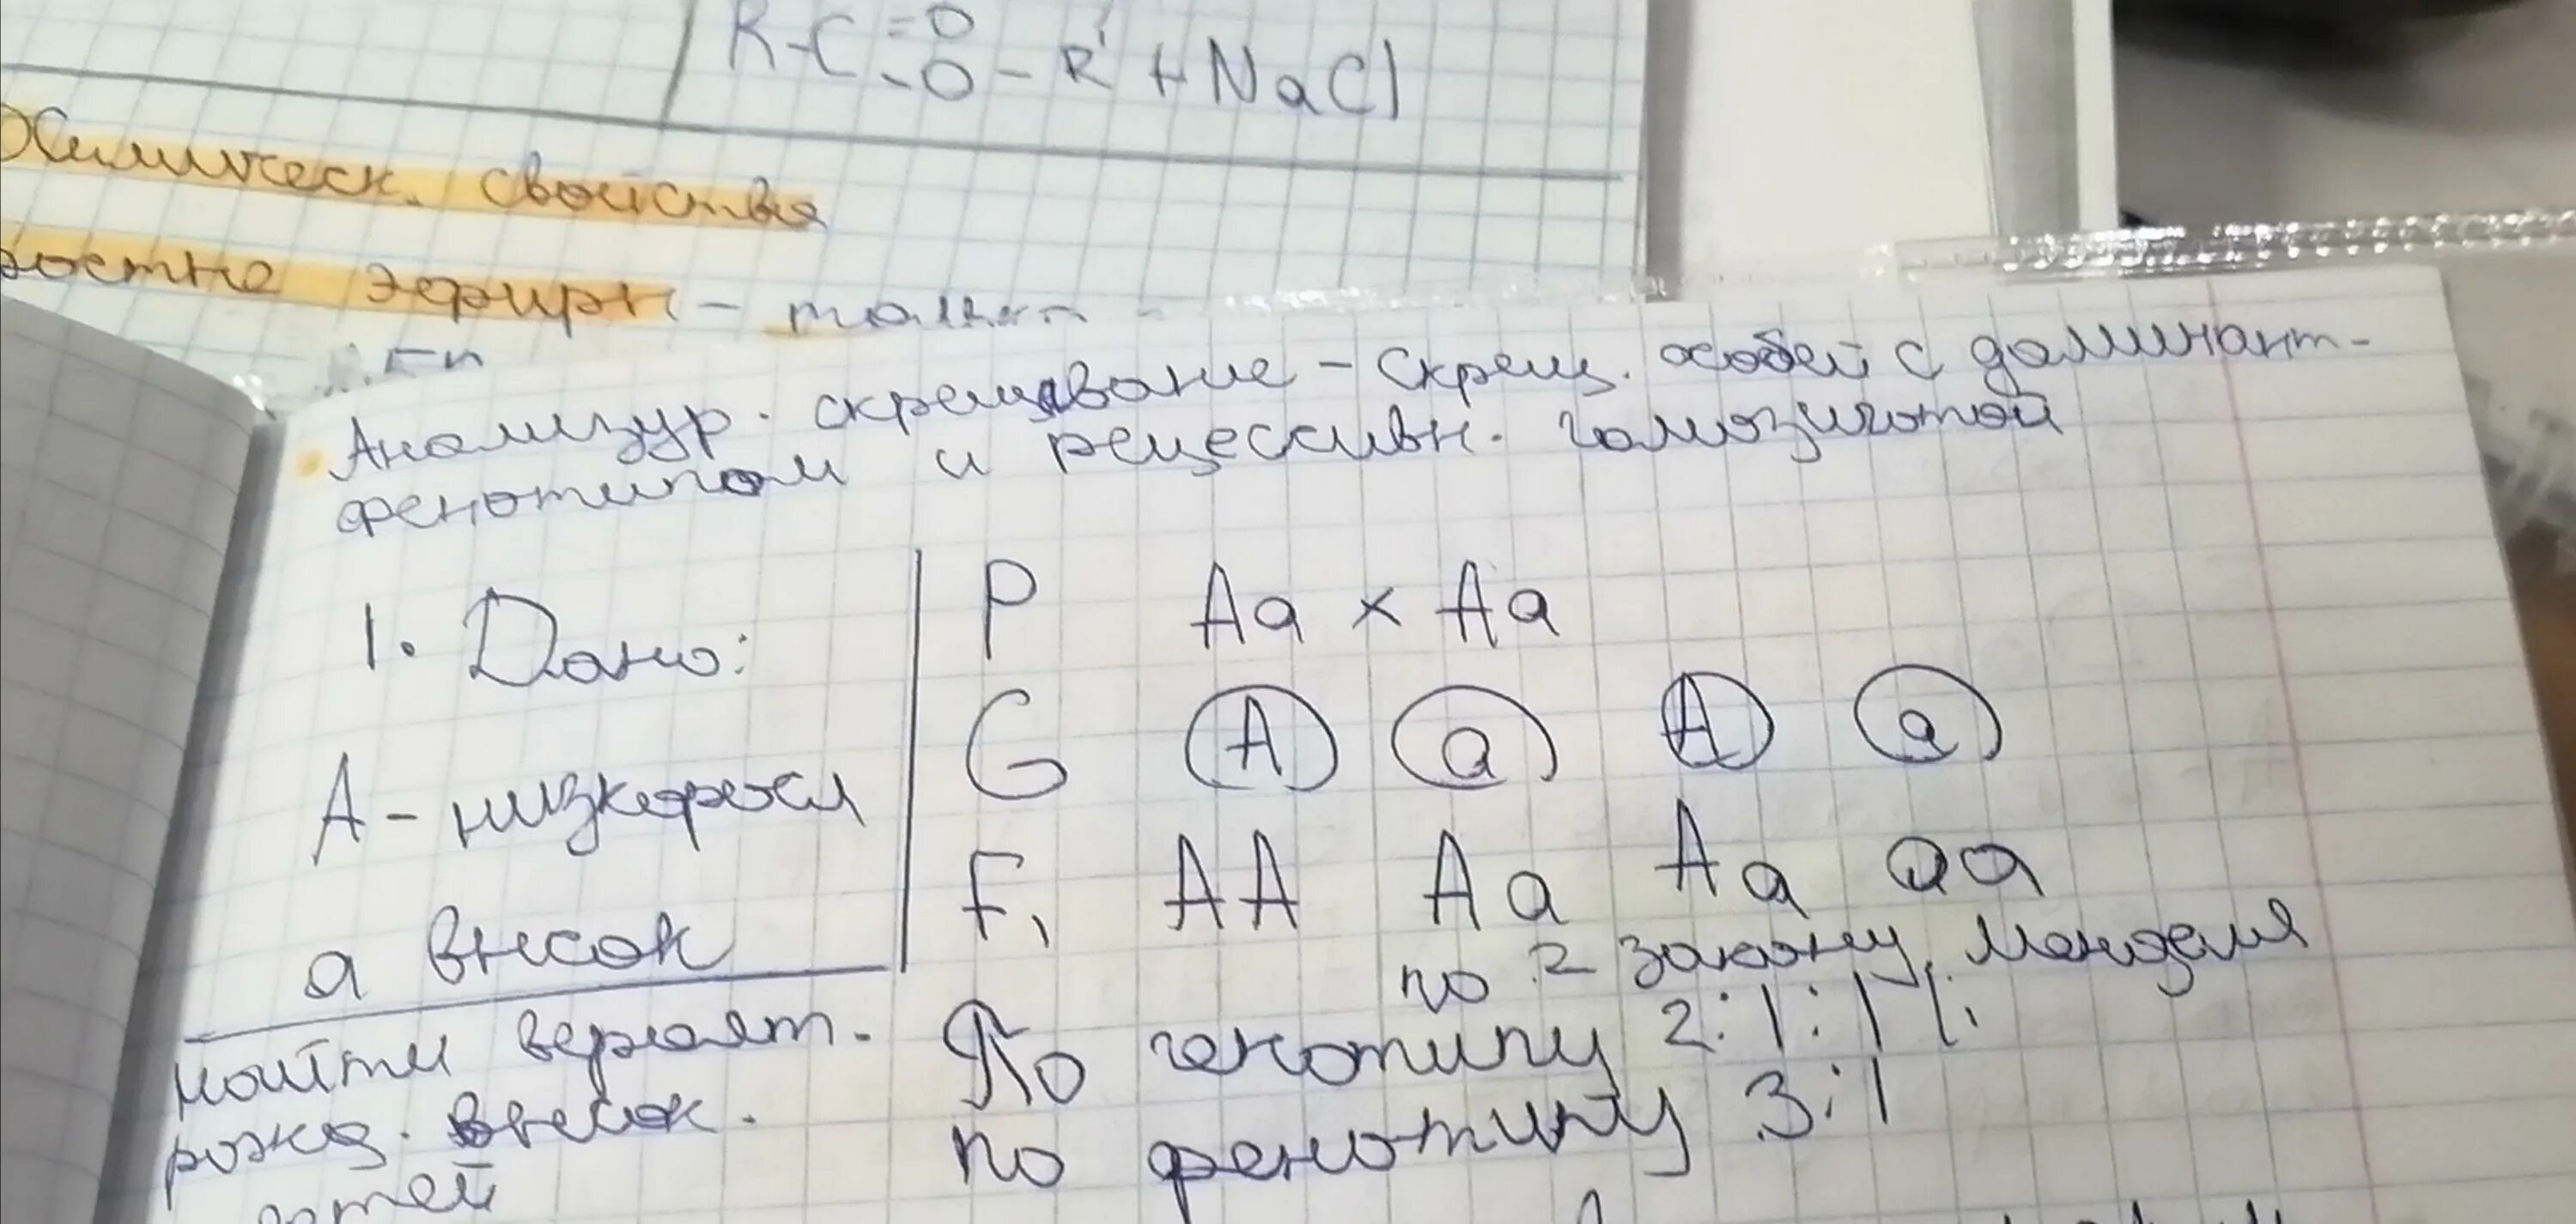 R-C =O
-O-R' + NaCl
Химическ. свойства
эфиры -
Анализур. скрещивание - скрещ. особей с доминант-
фенотипом и рецессивн. гомозиготой
1. Дано:
А - низкоросл
а высок
Найти вероят.
рожд. высок.
детей
P Aa × Aa
G A a A a
F1 AA Aa Aa aa
по 2 закону Менделя
По генотипу 2:1:1
по фенотипу 3:1